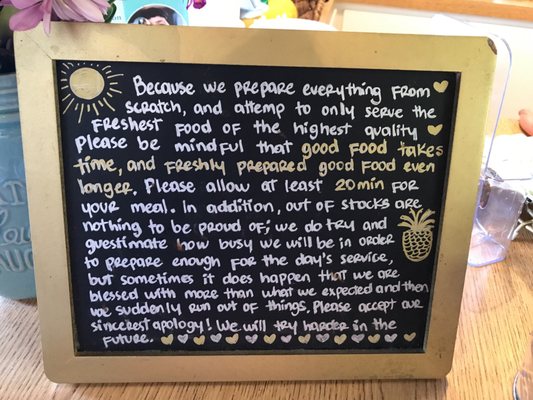 Because we prepare everything from
scratch, and attemp to only serve the
freshest food of the highest quality
Please be mindful that good food takes
time, and freshly prepared good food even
longer. Please allow at least 20min for
your meal. In addition, out of stocks are
nothing to be proud of; we do try and
guestimate how busy we will be in order
to prepare enough for the day's service,
but sometimes it does happen that we are
blessed with more than what we expected and then
we suddenly run out of things. Please accept our
sincerest apology! We will try harder in the
future.